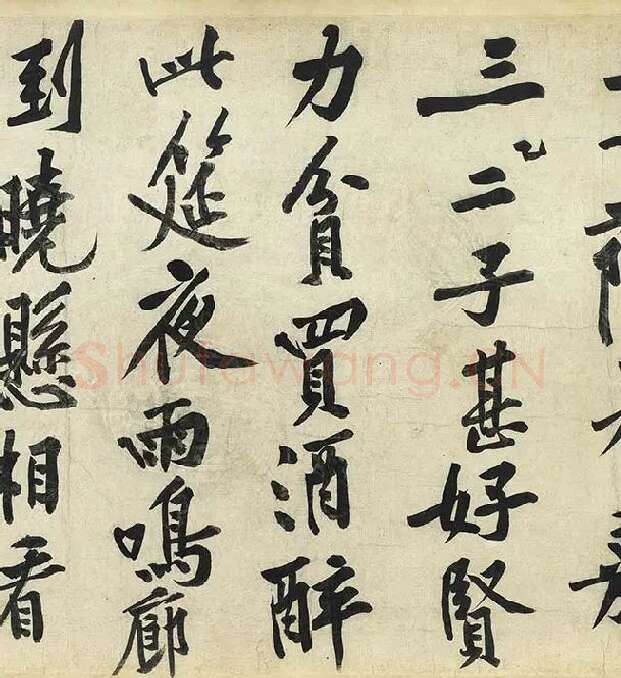 三二子甚好賢
力貧買酒醉
此筵夜雨鳴廊
到曉懸相看
Shufawang.CN